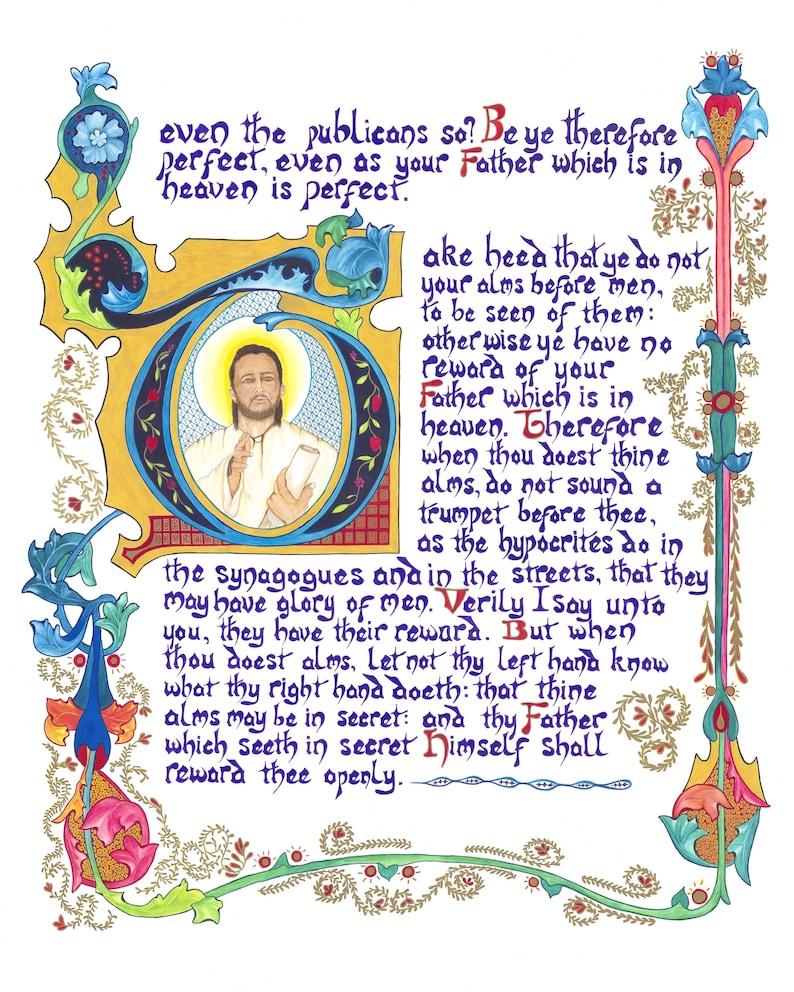 even the publicans so? Be ye therefore
perfect, even as your Father which is in
heaven is perfect.
Take heed that ye do not
your alms before men,
to be seen of them:
otherwise ye have no
reward of your
Father which is in
heaven. Therefore
when thou doest thine
alms, do not sound a
trumpet before thee,
as the hypocrites do in
the synagogues and in the streets, that they
may have glory of men. Verily I say unto
you, they have their reward. But when
thou doest alms, let not thy left hand know
what thy right hand doeth: that thine
alms may be in secret: and thy Father
which seeth in secret himself shall
reward thee openly.